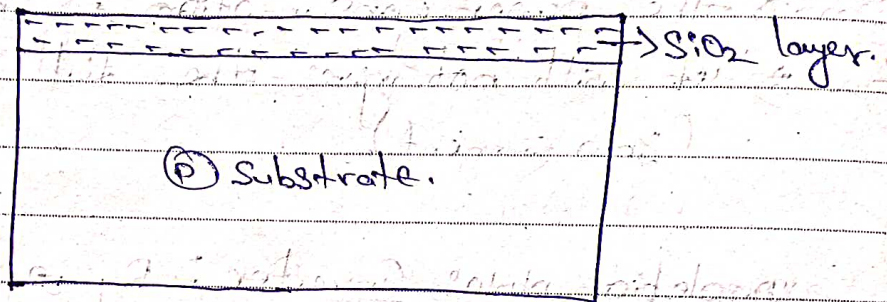 → SiO₂ layer.
Ⓟ Substrate.